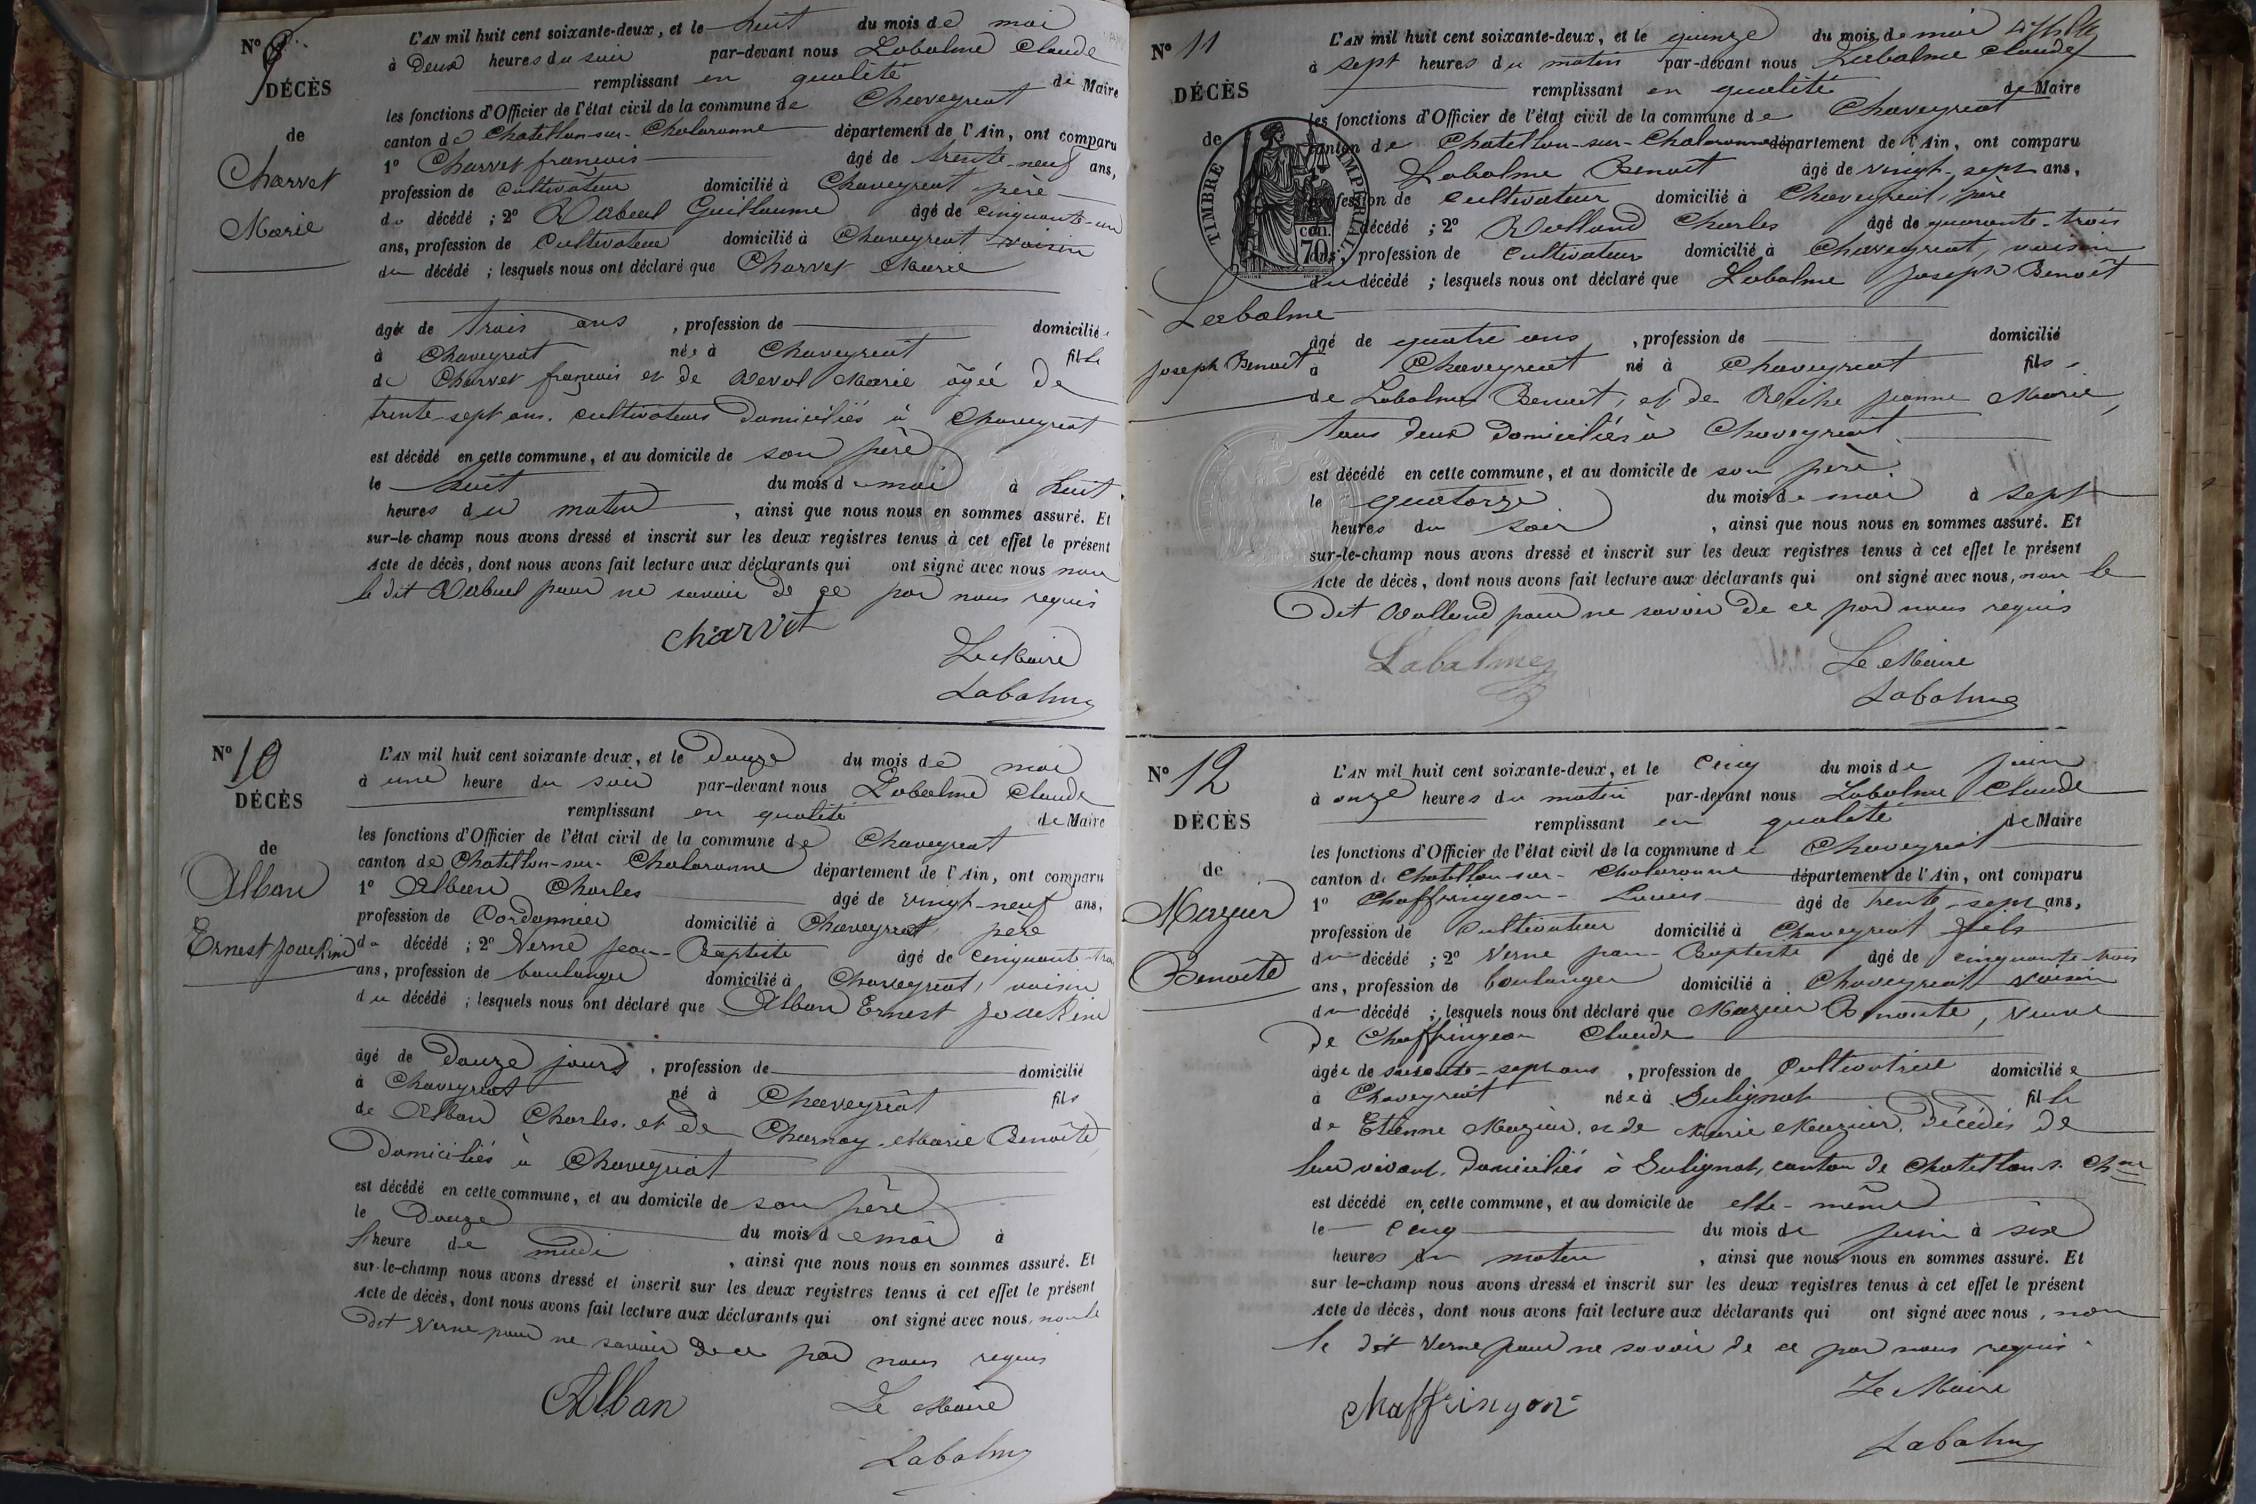 N° 9
DÉCÈS
de
Charvet
Marie
L'AN mil huit cent soixante-deux, et le huit du mois de mai
à Deux heures du soir par-devant nous Labalme Claude
remplissant en qualité de Maire
les fonctions d'Officier de l'état civil de la commune de Chaveyriat
canton de Chatillon-sur-Chalaronne département de l'Ain, ont comparu
1° Charvet françois âgé de trente-neuf ans,
profession de cultivateur domicilié à Chaveyriat père
du décédé ; 2° Guillaume âgé de cinquante-un
ans, profession de Cultivateur domicilié à Chaveyriat voisin
du décédé ; lesquels nous ont déclaré que Charvet Marie
âgée de trois ans , profession de domicilié
à Chaveyriat née à Chaveyriat fille
de Charvet françois et de Marie âgée de
trente-sept ans. cultivateurs Domiciliés à Chaveyriat
est décédé en cette commune, et au domicile de son père
le huit du mois de mai à huit
heures du matin , ainsi que nous nous en sommes assuré. Et
sur-le-champ nous avons dressé et inscrit sur les deux registres tenus à cet effet le présent
Acte de décès, dont nous avons fait lecture aux déclarants qui ont signé avec nous non
le dit pour ne savoir de ce par nous requis
charvet
Le Maire
Labalme
N° 10
DÉCÈS
de
Alban
Ernest Joackim
L'AN mil huit cent soixante-deux, et le Douze du mois de mai
à une heure du soir par-devant nous Labalme Claude
remplissant en qualité de Maire
les fonctions d'Officier de l'état civil de la commune de Chaveyriat
canton de Chatillon-sur-Chalaronne département de l'Ain, ont comparu
1° Alban Charles âgé de vingt-neuf ans,
profession de Cordonnier domicilié à Chaveyriat père
du décédé ; 2° Verne Jean-Baptiste âgé de cinquante-trois
ans, profession de boulanger domicilié à Chaveyriat, voisin
du décédé ; lesquels nous ont déclaré que Alban Ernest Joackim
âgé de Douze jours , profession de domicilié
à Chaveyriat né à Chaveyriat fils
de Alban Charles. et de Charnay Marie Benoîte
Domiciliés à Chaveyriat
est décédé en cette commune, et au domicile de son père
le Douze du mois de mai à
l'heure de midi , ainsi que nous nous en sommes assuré. Et
sur-le-champ nous avons dressé et inscrit sur les deux registres tenus à cet effet le présent
Acte de décès, dont nous avons fait lecture aux déclarants qui ont signé avec nous, non le
dit Verne pour ne savoir de ce par nous requis
Alban
Le Maire
Labalme
N° 11
DÉCÈS
de
TIMBRE IMPÉRIAL
CEN. 70
Labalme
Joseph Benoît
L'AN mil huit cent soixante-deux, et le quinze du mois de mai
à sept heures du matin par-devant nous Labalme Claude
remplissant en qualité de Maire
les fonctions d'Officier de l'état civil de la commune de Chaveyriat
canton de Chatillon-sur-Chalaronne département de l'Ain, ont comparu
Labalme Benoît âgé de vingt-sept ans,
profession de cultivateur domicilié à Chaveyriat, père
décédé ; 2° Charles âgé de quarante-trois
ans, profession de cultivateur domicilié à Chaveyriat, voisin
du décédé ; lesquels nous ont déclaré que Labalme Joseph Benoît
âgé de quatre ans , profession de domicilié
à Chaveyriat né à Chaveyriat fils
de Labalme Benoît, et de Jeanne Marie,
tous deux Domiciliés à Chaveyriat
est décédé en cette commune, et au domicile de son père
le quatorze du mois de mai à sept
heures du soir , ainsi que nous nous en sommes assuré. Et
sur-le-champ nous avons dressé et inscrit sur les deux registres tenus à cet effet le présent
Acte de décès, dont nous avons fait lecture aux déclarants qui ont signé avec nous, non le
dit pour ne savoir de ce par nous requis
Labalme
Le Maire
Labalme
N° 12
DÉCÈS
de
Mazuir
Benoîte
L'AN mil huit cent soixante-deux, et le cinq du mois de juin
à onze heures du matin par-devant nous Labalme Claude
remplissant en qualité de Maire
les fonctions d'Officier de l'état civil de la commune de Chaveyriat
canton de Chatillon-sur-Chalaronne département de l'Ain, ont comparu
1° Chaffringeon Louis âgé de trente-sept ans,
profession de cultivateur domicilié à Chaveyriat fils
du décédé ; 2° Verne Jean-Baptiste âgé de cinquante-trois
ans, profession de boulanger domicilié à Chaveyriat voisin
du décédé ; lesquels nous ont déclaré que Mazuir Benoîte, veuve
de Chaffringeon Claude
âgée de soixante-sept ans , profession de Cultivatrice domiciliée
à Chaveyriat née à Sulignat fille
de Etienne Mazuir. et de Marie Mazuir. Décédés de
leur vivant. domiciliés à Sulignat, canton de Chatillon s. Chne
est décédé en cette commune, et au domicile de elle-même
le cinq du mois de juin à six
heures du matin , ainsi que nous nous en sommes assuré. Et
sur-le-champ nous avons dressé et inscrit sur les deux registres tenus à cet effet le présent
Acte de décès, dont nous avons fait lecture aux déclarants qui ont signé avec nous, non
le dit Verne pour ne savoir de ce par nous requis.
chaffringon
Le Maire
Labalme